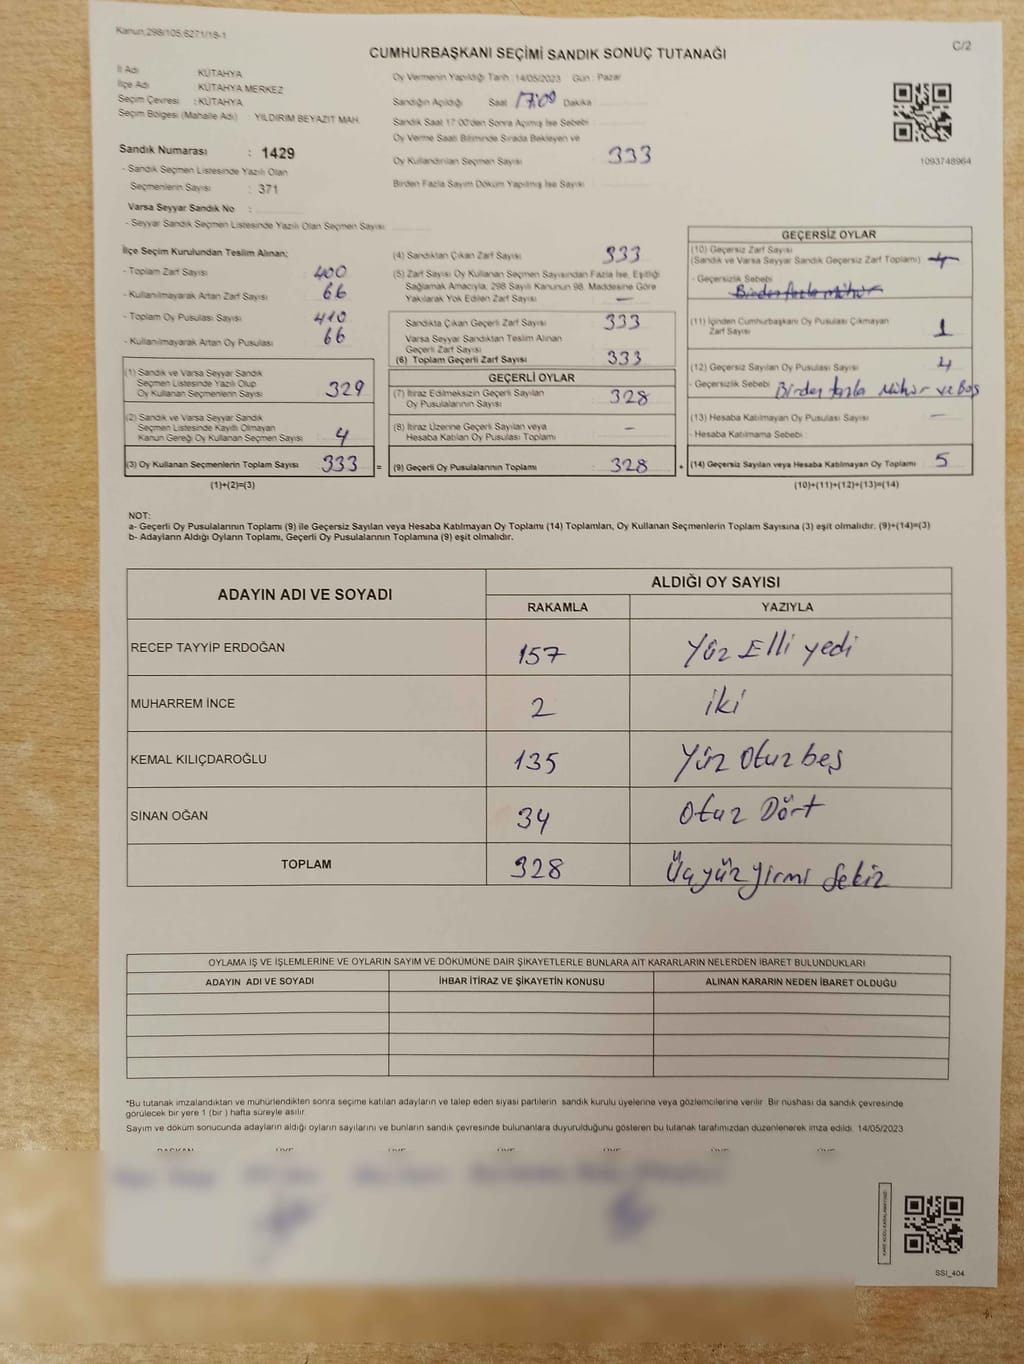 Kanun:298/105,6271/18-1
C/2
CUMHURBAŞKANI SEÇİMİ SANDIK SONUÇ TUTANAĞI
İl Adı : KÜTAHYA
İlçe Adı : KÜTAHYA MERKEZ
Seçim Çevresi : KÜTAHYA
Seçim Bölgesi (Mahalle Adı) : YILDIRIM BEYAZIT MAH.
Sandık Numarası : 1429
- Sandık Seçmen Listesinde Yazılı Olan
Seçmenlerin Sayısı : 371
Varsa Seyyar Sandık No :
- Seyyar Sandık Seçmen Listesinde Yazılı Olan Seçmen Sayısı:
Oy Vermenin Yapıldığı Tarih :14/05/2023 Gün : Pazar
Sandığın Açıldığı Saat 17:00 Dakika
Sandık Saat 17:00'den Sonra Açımış İse Sebebi :
Oy Verme Saati Bitiminde Sırada Bekleyen ve
Oy Kullandırılan Seçmen Sayısı : 333
Birden Fazla Sayım Döküm Yapılmış İse Sayısı :
1093748964
İlçe Seçim Kurulundan Teslim Alınan;
- Toplam Zarf Sayısı : 400
- Kullanılmayarak Artan Zarf Sayısı : 66
- Toplam Oy Pusulası Sayısı : 410
- Kullanılmayarak Artan Oy Pusulası : 66
(1) Sandık ve Varsa Seyyar Sandık
Seçmen Listesinde Yazılı Olup
Oy Kullanan Seçmenlerin Sayısı : 329
(2) Sandık ve Varsa Seyyar Sandık
Seçmen Listesinde Kayıtlı Olmayan
Kanun Gereği Oy Kullanan Seçmen Sayısı : 4
(3) Oy Kullanan Seçmenlerin Toplam Sayısı : 333 =
(1)+(2)=(3)
(4) Sandıktan Çıkan Zarf Sayısı : 333
(5) Zarf Sayısı Oy Kullanan Seçmen Sayısından Fazla İse, Eşitliği
Sağlamak Amacıyla, 298 Sayılı Kanunun 98. Maddesine Göre
Yakılarak Yok Edilen Zarf Sayısı : —
Sandıkta Çıkan Geçerli Zarf Sayısı : 333
Varsa Seyyar Sandıktan Teslim Alınan
Geçerli Zarf Sayısı :
(6) Toplam Geçerli Zarf Sayısı : 333
GEÇERLİ OYLAR
(7) İtiraz Edilmeksizin Geçerli Sayılan
Oy Pusulalarının Sayısı : 328
(8) İtiraz Üzerine Geçerli Sayılan veya
Hesaba Katılan Oy Pusulası Toplamı : –
(9) Geçerli Oy Pusulalarının Toplamı : 328 +
GEÇERSİZ OYLAR
(10) Geçersiz Zarf Sayısı
(Sandık ve Varsa Seyyar Sandık Geçersiz Zarf Toplamı) : 4
- Geçersizlik Sebebi : Birden fazla mühür
(11) İçinden Cumhurbaşkanı Oy Pusulası Çıkmayan
Zarf Sayısı : 1
(12) Geçersiz Sayılan Oy Pusulası Sayısı : 4
- Geçersizlik Sebebi : Birden fazla Mühür ve Boş
(13) Hesaba Katılmayan Oy Pusulası Sayısı : –
- Hesaba Katılmama Sebebi :
(14) Geçersiz Sayılan veya Hesaba Katılmayan Oy Toplamı : 5
(10)+(11)+(12)+(13)=(14)
NOT:
a- Geçerli Oy Pusulalarının Toplamı (9) ile Geçersiz Sayılan veya Hesaba Katılmayan Oy Toplamı (14) Toplamları, Oy Kullanan Seçmenlerin Toplam Sayısına (3) eşit olmalıdır. (9)+(14)=(3)
b- Adayların Aldığı Oyların Toplamı, Geçerli Oy Pusulalarının Toplamına (9) eşit olmalıdır.
ADAYIN ADI VE SOYADI ALDIĞI OY SAYISI
RAKAMLA YAZIYLA
RECEP TAYYİP ERDOĞAN 157 Yüz Elli yedi
MUHARREM İNCE 2 iki
KEMAL KILIÇDAROĞLU 135 Yüz Otuz beş
SİNAN OĞAN 34 Otuz Dört
TOPLAM 328 Üçyüz yirmi Sekiz
OYLAMA İŞ VE İŞLEMLERİNE VE OYLARIN SAYIM VE DÖKÜMÜNE DAİR ŞİKAYETLERLE BUNLARA AİT KARARLARIN NELERDEN İBARET BULUNDUKLARI
ADAYIN ADI VE SOYADI İHBAR İTİRAZ VE ŞİKAYETİN KONUSU ALINAN KARARIN NEDEN İBARET OLDUĞU
*Bu tutanak imzalandıktan ve mühürlendikten sonra seçime katılan adayların ve talep eden siyasi partilerin sandık kurulu üyelerine veya gözlemcilerine verilir. Bir nüshası da sandık çevresinde
görülecek bir yere 1 (bir ) hafta süreyle asılır.
Sayım ve döküm sonucunda adayların aldığı oyların sayılarını ve bunların sandık çevresinde bulunanlara duyurulduğunu gösteren bu tutanak tarafımızdan düzenlenerek imza edildi. 14/05/2023
BAŞKAN ÜYE ÜYE ÜYE ÜYE ÜYE ÜYE
KARE KODU KARALAMAYINIZ!
SSI_404